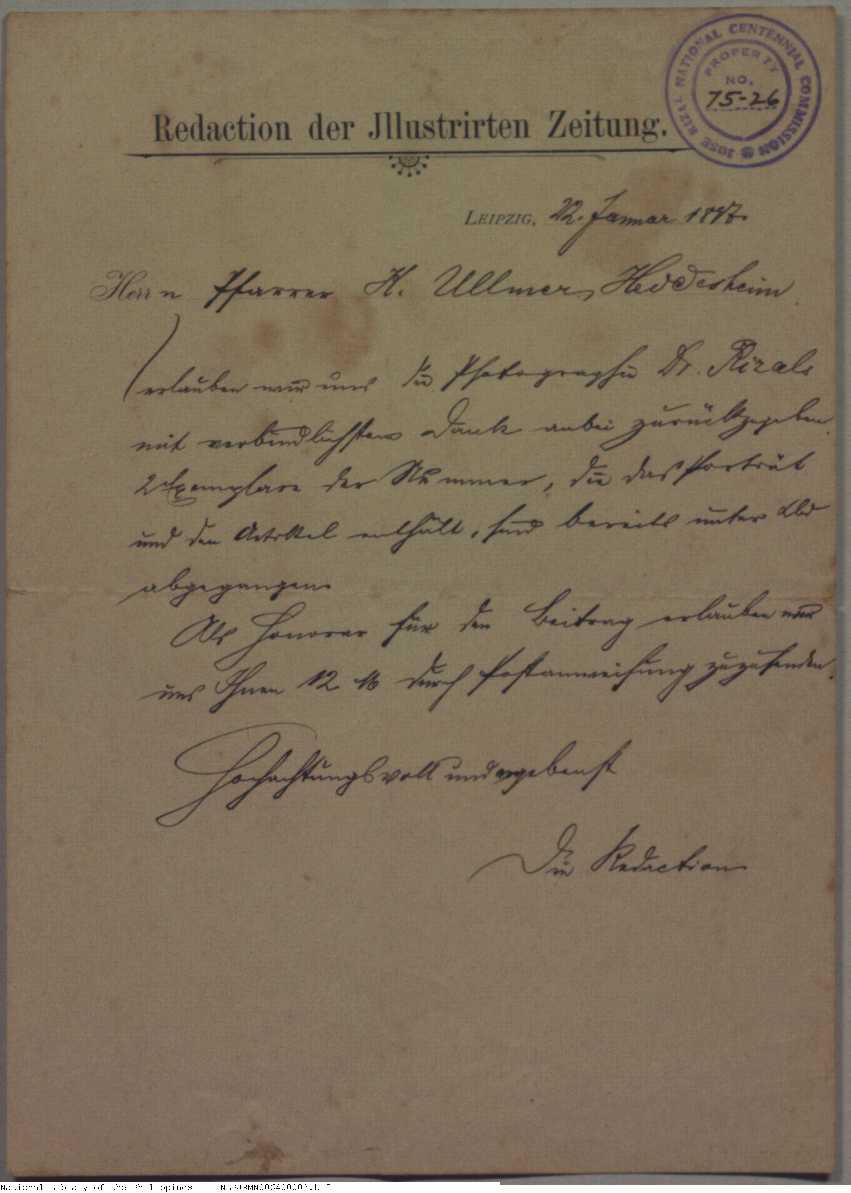 JOSE RIZAL NATIONAL CENTENNIAL COMMISSION
PROPERTY
NO.
75-26
Redaction der Jllustrirten Zeitung.
LEIPZIG, 22. Januar 1897.
Herrn Pfarrer K. Ullmer, Heddesheim
erlauben wir uns die Photographie Dr. Rizals
mit verbindlichstem Dank anbei zurückzugeben.
2 Exemplare der Nummer, die das Porträt
und den Artikel enthält, sind bereits unter
abgegangen.
Als Honorar für den Beitrag erlauben wir
uns Ihnen 12 M durch Postanweisung zuzusenden.
Hochachtungsvoll und ergebenst
Die Redaction
National Library of the Philippines